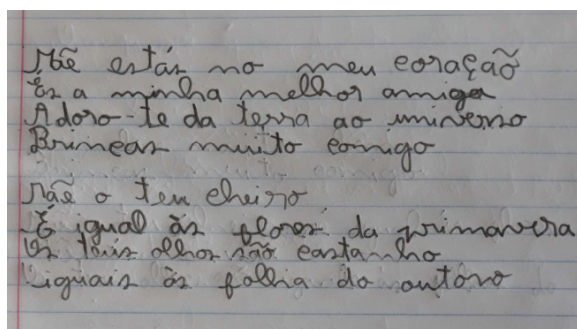 Mãe estás no meu coração
És a minha melhor amiga
Adoro-te da terra ao universo
Brincas muito comigo
Mãe o teu cheiro
É igual às flores da primavera
Os teus olhos são castanho
iguais às folha do outono